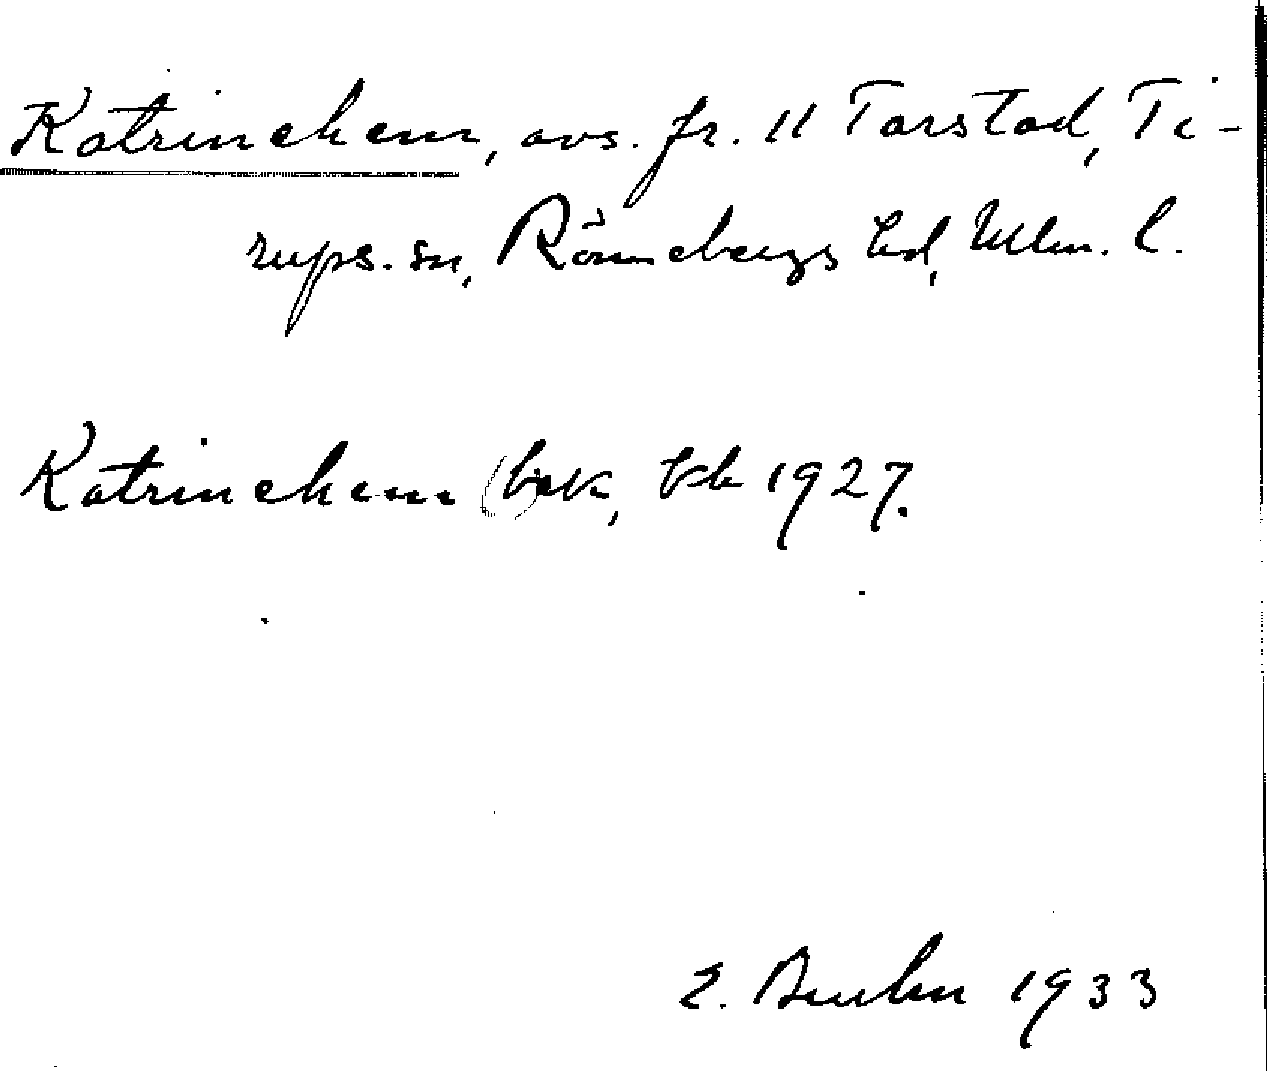 Katrinehem, avs. fr. 11 Tarstad, Ti-
rups. sn, Rönnebergs hd, Mlm. l.
Katrinehem bok, Ek 1927.
E. 1933